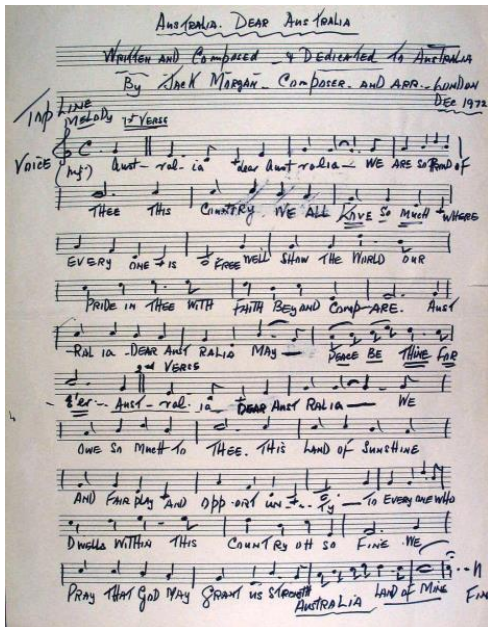 AUSTRALIA. DEAR AUSTRALIA
WRITTEN AND COMPOSED - & DEDICATED TO AUSTRALIA
BY JACK MORGAN - COMPOSER. AND ARR. - LONDON
DEC 1972
TOP LINE
MELODY 1ST VERSE
VOICE (mf) C Aust-ral-ia dear Aust ralia - WE ARE SO PROUD OF
THEE THIS COUNTRY. WE ALL LOVE SO MUCH WHERE
EVERY ONE IS FREE WELL SHOW THE WORLD OUR
PRIDE IN THEE WITH FAITH BEYOND COMP-ARE. AUST
-RAL IA - DEAR AUST RALIA MAY - PEACE BE THINE FOR
2nd VERSE
E'er - AUST-ral-ia - DEAR AUST RALIA - WE
OWE SO MUCH TO THEE. THIS LAND OF SUNSHINE
AND FAIR PLAY AND OPP-ORT UN-I-TY - TO EVERY ONE WHO
DWELLS WITHIN THIS COUNTRY OH SO FINE WE
PRAY THAT GOD MAY GRANT US STRENGTH AUSTRALIA LAND OF MINE FINE